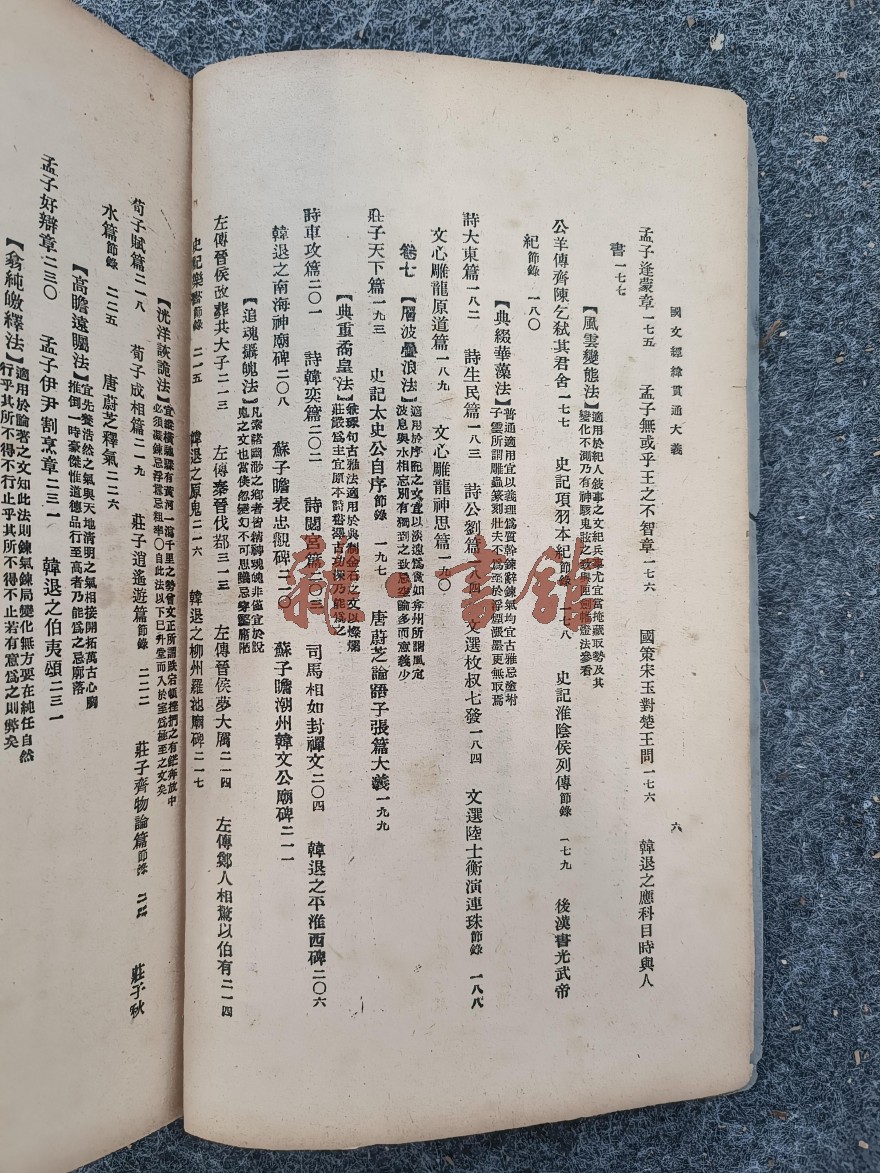 國文經緯貫通大義
六
孟子逢蒙章一七五 孟子無或乎王之不智章一七六 國策宋玉對楚王問一七六 韓退之應科目時與人
書一七七
【風雲變態法】適用於紀人敍事之文紀兵事尤宜當掩藏取勢及其
變化不測乃有神駭鬼眩之致與匣劍帷燈法參看
公羊傳齊陳乞弒其君舍一七七 史記項羽本紀節錄一七八 史記淮陰侯列傳節錄一七九 後漢書光武帝
紀節錄一八〇
【典綴華藻法】普通適用宜以義理爲質幹鍊辭鍊氣均宜古雅忌塗坿
子雲所謂雕蟲篆刻壯夫不爲至於浮煙漲墨更無取焉
詩大東篇一八二 詩生民篇一八三 詩公劉篇一八四 文選枚叔七發一八四 文選陸士衡演連珠節錄一八八
文心雕龍原道篇一八九 文心雕龍神思篇一九〇
卷七【層波疊浪法】適用於序記之文宜以淡遠爲貴如弇州所謂風定
波息與水相忘別有獨到之致忌空論多而意義少
莊子天下篇一九三 史記太史公自序節錄一九七 唐蔚芝論語子張篇大義一九九
【典重矞皇法】琢句古雅法適用於典制金石之文以燦爛
莊嚴爲主宜原本詩書澤古功深乃能爲之
詩車攻篇二〇一 詩韓奕篇二〇二 詩閟宮篇二〇三 司馬相如封禪文二〇四 韓退之平淮西碑二〇六
韓退之南海神廟碑二〇八 蘇子瞻表忠觀碑二一〇 蘇子瞻潮州韓文公廟碑二一一
【追魂攝魄法】凡索諸幽渺之鄉者皆精神魂魄非僅宜於說
鬼之文也當倏忽變幻不可思議忌穿鑿庸陋
左傳晉侯改葬共大子二一三 左傳秦晉伐鄀三一三 左傳晉侯夢大厲二一四 左傳鄭人相驚以伯有二一四
史記樂書節錄二一五 韓退之原鬼二一六 韓退之柳州羅池廟碑二一七
【洸洋詼詭法】宜縱橫馳驟有黃河一瀉千里之勢曾文正所謂跌宕頓挫捫之有鋩奔放中
必須凝鍊忌浮囂忌粗率〇自此法以下已升堂而入於室爲極至之文矣
荀子賦篇二一八 荀子成相篇二一九 莊子逍遙遊篇節錄二二二 莊子齊物論篇節錄 莊子秋
水篇節錄二二五 唐蔚芝釋氣二二六
【高瞻遠矚法】宜先養浩然之氣與天地清明之氣相接開拓萬古心胸
推倒一時豪傑惟道德品行至高者乃能爲之忌廓落
孟子好辯章二三〇 孟子伊尹割烹章二三一 韓退之伯夷頌二三一
【翕純皦繹法】適用於論著之文知此法則鍊氣鍊局變化無方要在純任自然
行乎其所不得不行止乎其所不得不止若有意爲之則弊矣
龍一書舘